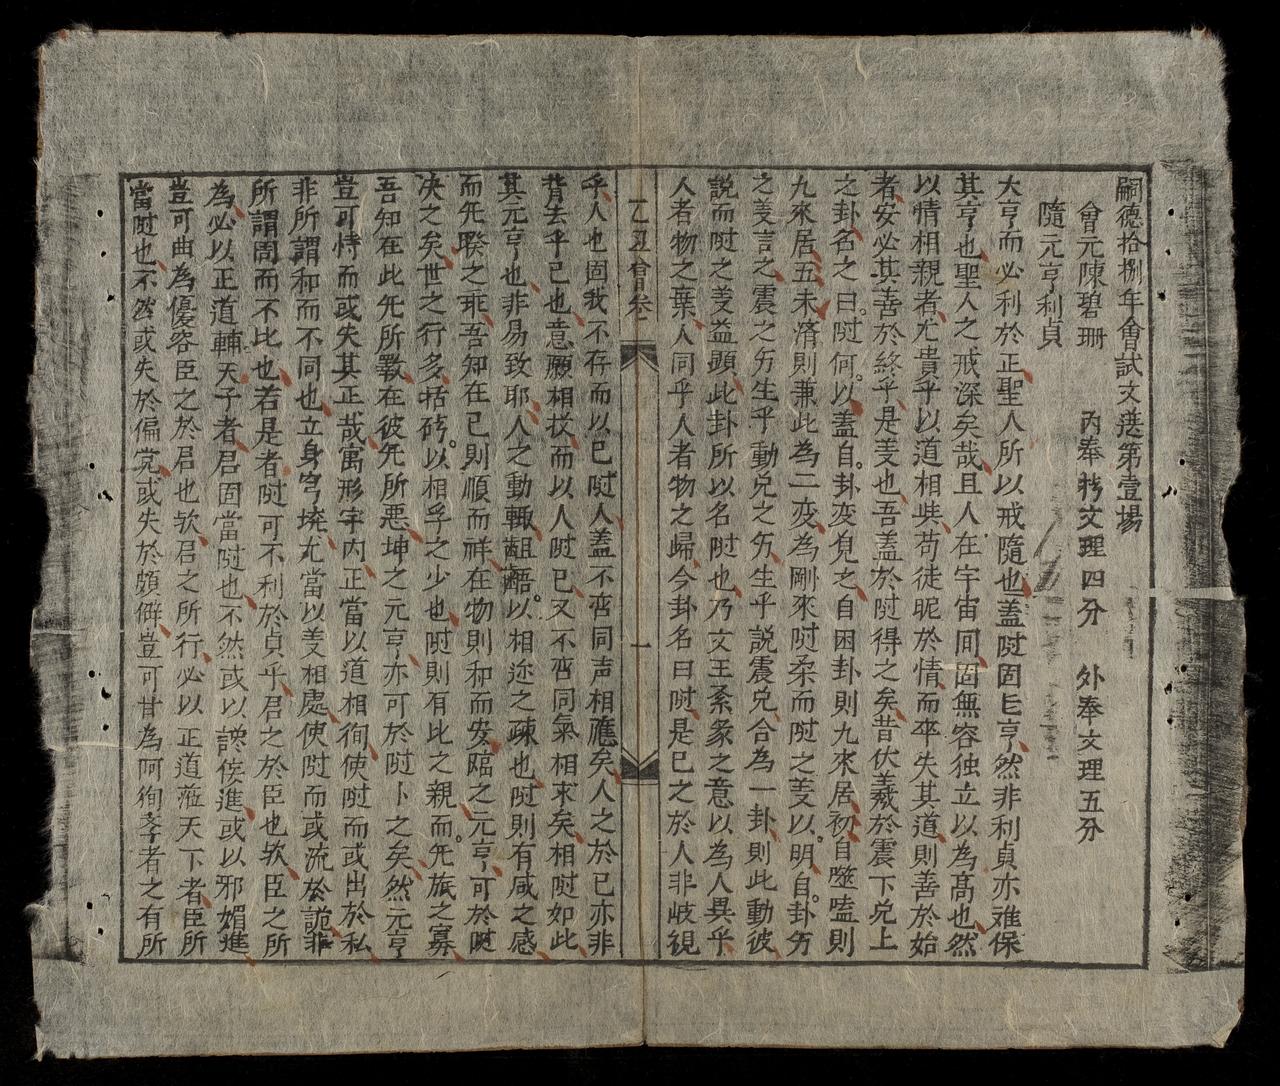 嗣德拾捌年會試文選第壹場
會元陳碧珊 內奉批文理四分 外奉文理五分
隨元亨利貞
大亨而必利於正聖人所以戒隨也蓋隨固旨亨然非利貞亦难保
其亨也聖人之戒深矣哉且人在宇宙间固無容独立以為髙也然
以情相親者尤貴乎以道相與苟徒昵於情而卒失其道則善於始
者安必其善於終乎是義也吾盖於隨得之矣昔伏羲於震下兌上
之卦名之曰隨何以盖自卦変見之自困卦則九來居初自噬嗑則
九來居五未濟則兼此為二变為剛來隨柔而隨之義以明自卦方
之義言之震之方生乎動兌之方生乎説震兌合為一卦則此動彼
説而隨之義益顕此卦所以名隨也乃文王系彖之意以為人異乎
人者物之棄人同乎人者物之歸今卦名曰隨是已之於人非岐視
乙丑會参
一
乎人也固我不存而以已隨人盖不啻同声相應矣人之於已亦非
背去乎已也意願相投而以人隨已又不啻同氣相求矣相隨如此
其元亨也非易致耶人之動輒齟齬以相迩之疎也隨則有咸之感
而旡睽之乖吾知在已則順而祥在物則和而安臨之元亨可於隨
决之矣世之行多括𥓓以相孚之少也隨則有比之親而旡旅之寡
吾知在此旡所斁在彼旡所悪坤之元亨亦可於隨卜之矣然元亨
豈可恃而或失其正哉寓形宇内正當以道相徇使隨而或出於私
非所謂和而不同也立身穹壤尤當以義相處使隨而或流於詭非
所謂周而不比也若是者隨可不利於貞乎君之於臣也欤臣之所
為必以正道輔天子者君固當隨也不然或以䜛侫進或以邪媚進
豈可曲為優容臣之於君也欤君之所行必以正道蒞天下者臣所
當隨也不然或失於偏党或失於頗僻豈可甘為阿徇孝者之有所